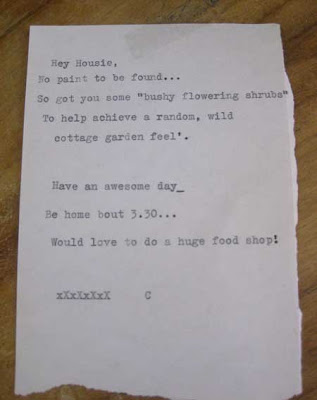 Hey Housie,
No paint to be found...
So got you some "bushy flowering shrubs"
To help achieve a random, wild
cottage garden feel'.
Have an awesome day_
Be home bout 3.30...
Would love to do a huge food shop!
xXxXxXxX C